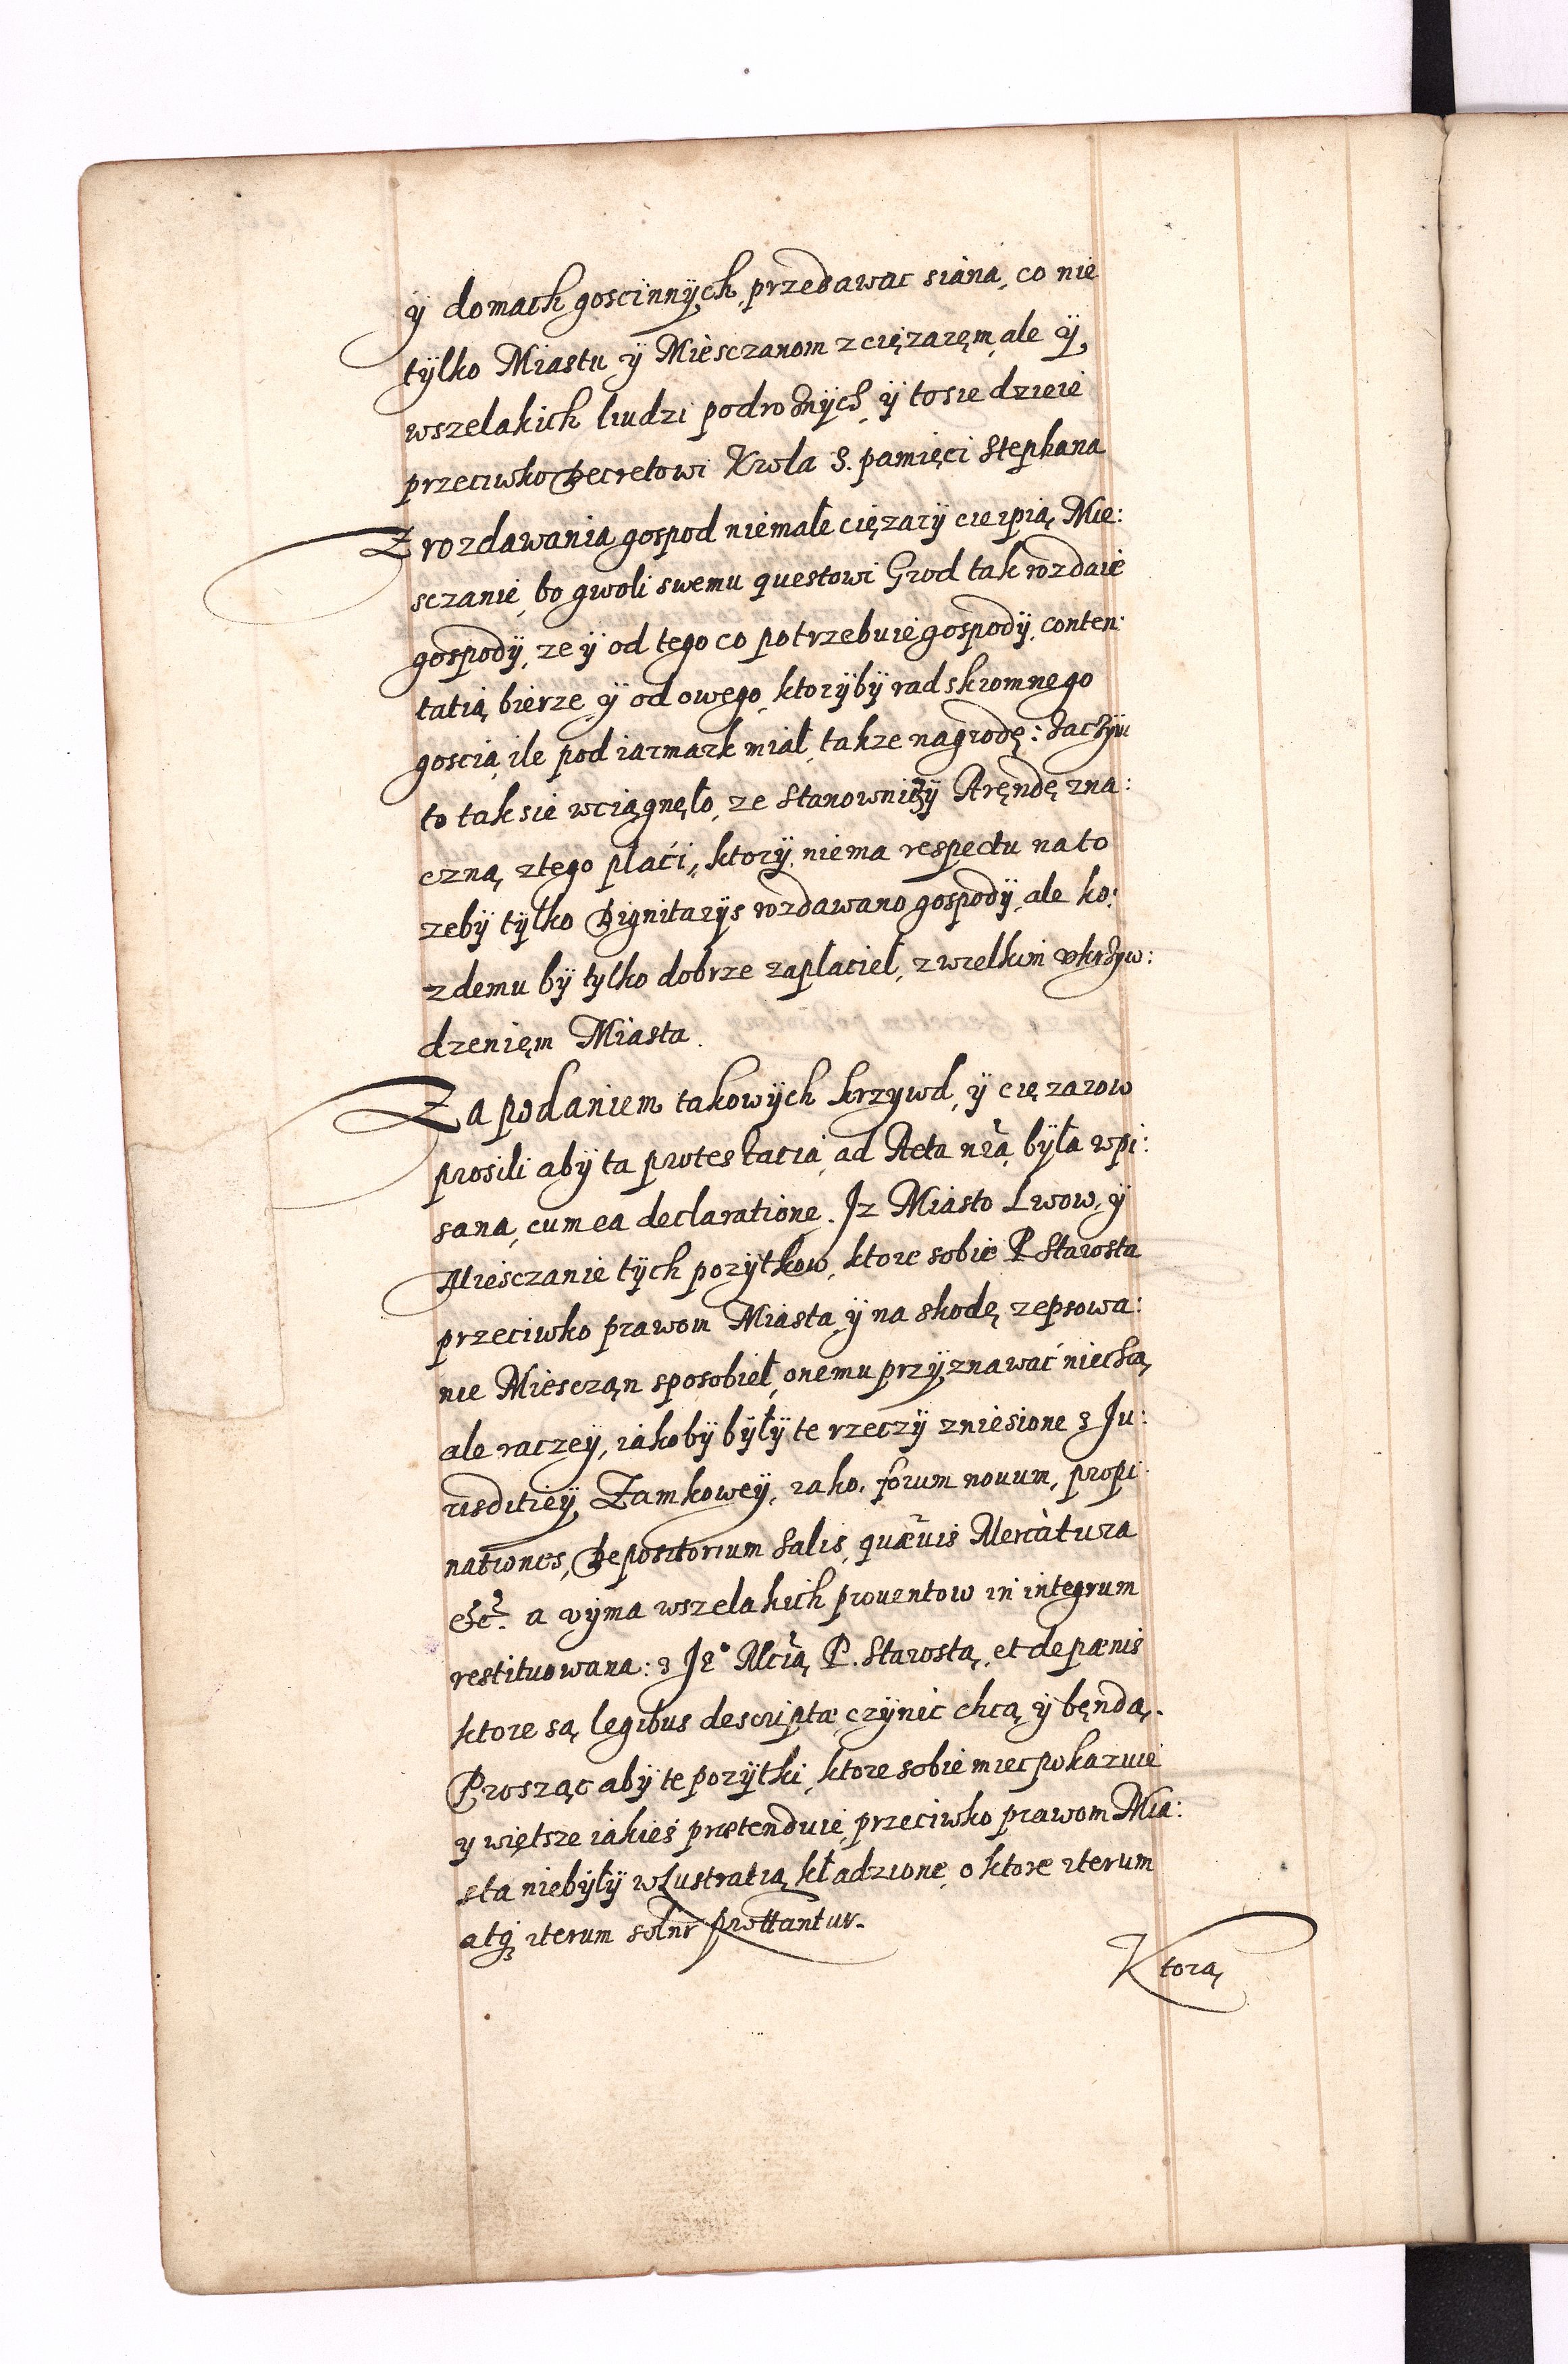 ÿ domach goscinnÿch, przedawac siana, co nie
tÿlko Miastu ÿ Miesczanom z cięzaręm, ale ÿ
wszelakich ludzi podroznÿch, ÿ to sie dzieie
przeciwko Decretowi Krola S. pamięci Stephana
Z rozdawania gospod niemałe cięzarÿ cierpią Mie:
sczanie, bo gwoli swemu questowi Grod tak rozdaie
gospodÿ, ze ÿ od tego co potrzebuie gospodÿ, conten:
tatią bierze, ÿ od owego, ktorÿbÿ rad skromnego
goscia, ile pod iarmark miał, takze nagrodę: Zaczÿm
to tak sie wciągnęło, ze Stanowniczÿ Aręndę zna:
czną, z tego płaci, ktorÿ niema respectu na to
zebÿ tÿlko Dignitarÿs rozdawano gospodÿ, ale ko:
zdemu bÿ tylko dobrze zapłacieł, z wielkim vkrzÿw:
dzenięm Miasta.
Za podaniem takowÿch krzywd, ÿ cięzarow
prosili abÿ ta protestatia, ad Acta nrã, bÿła wpi:
sana, cum ea declaratione. Jz Miasto Lwow, ÿ
Miesczanie tÿch pozÿtkow, ktore sobie P. Starosta
przeciwko prawom Miasta, ÿ na skodę zepsowa:
nie Miesczan sposobieł, onemu przÿznawać niechcą,
ale raczeÿ, iakobÿ bÿłÿ te rzeczÿ zniesione z Ju:
risditieÿ Zamkoweÿ, iako, forum nouum, propi:
nationes, Depositorium Salis, quævis Mercatura
&c. a vÿma wszelakich prouentow in integrum
restituowana: z Je° Mcią P. Starostą, et de pœnis
ktore są legibus descriptæ czÿnic chcą ÿ będą.
Prosząc abÿ te pozÿtki, ktore sobie miec pokazuie
y więtsze iakieś prætenduie, przeciwko prawom Mia:
sta niebÿłÿ w Lustratią kładzione, o ktore iterum
atq₃ iterum solnr prottantur.
Ktorą